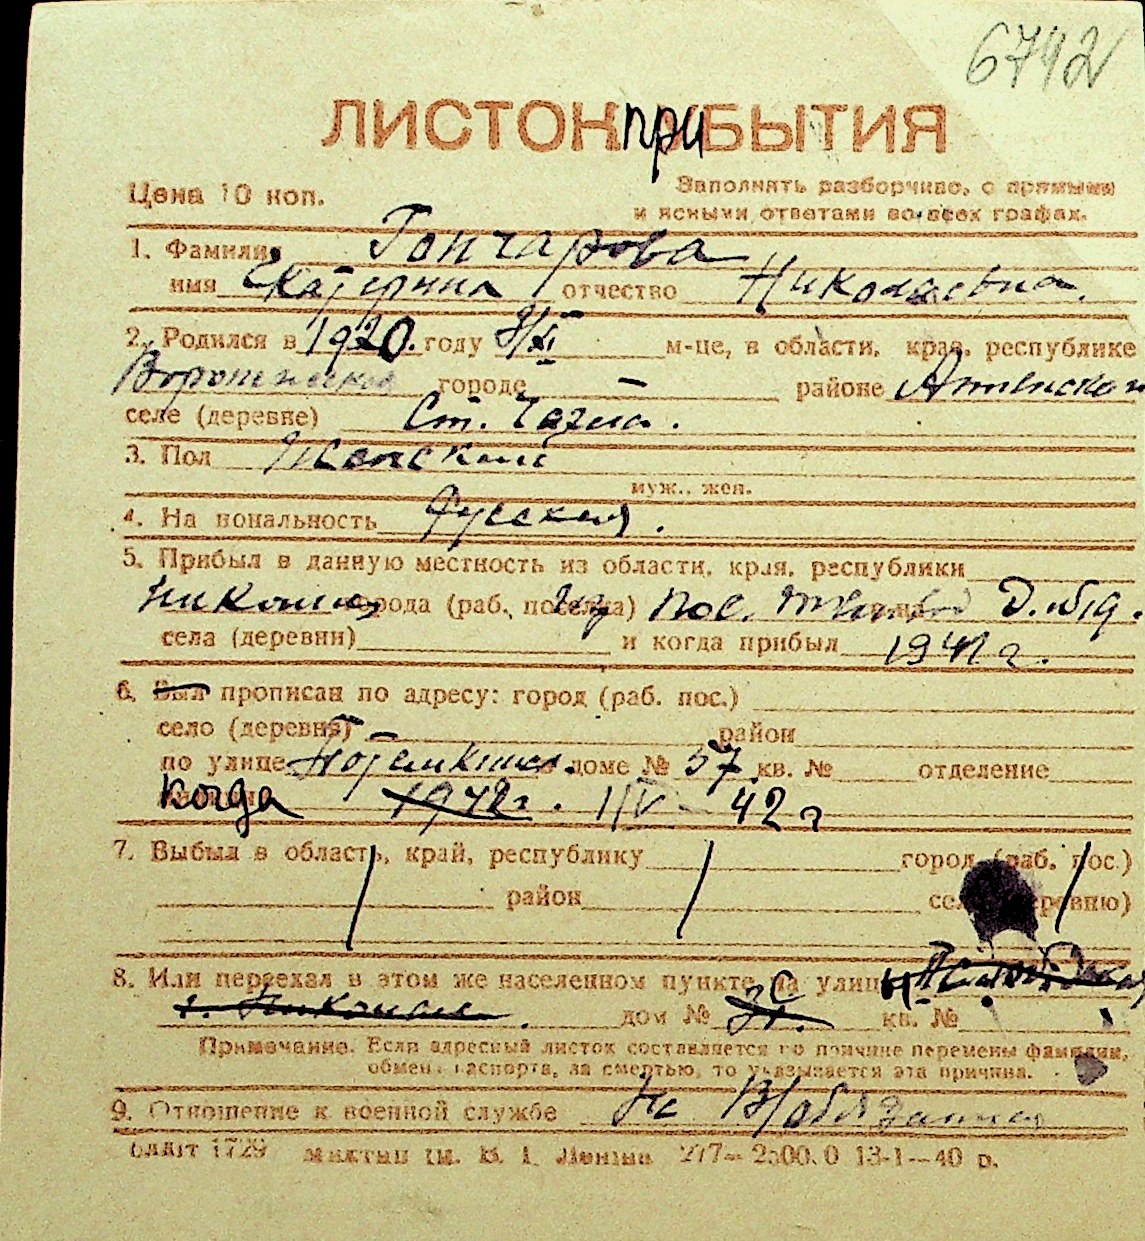 6742
ЛИСТОК ПРИБЫТИЯ
Цена 10 коп. Заполнять разборчиво, с прямыми
и ясными ответами во всех графах.
1. Фамилия Гончарова
имя Екатерина отчество Николаевна.
2. Родился в 1920. году 8/XI м-це, в области, края, республике
городе — районе
селе (деревне) Ст.
3. Пол Женский
муж., жен.
4. На иональность Русская.
5. Прибыл в данную местность из области, края, республики
города (раб. поселка) Из пос. Д. обл.
села (деревни) и когда прибыл 1941 г.
6. Был прописан по адресу: город (раб. пос.)
село (деревня) — район
по улице Потемкинск. доме № 57 кв. № отделение
Когда 1942 г. 1/IV 42 г
7. Выбыл в область, край, республику город (раб. пос.)
район село (деревню)
8. Или переехал в этом же населенном пункте на улицу
дом № кв. №
Примечание. Если адресный листок составляется по причине перемены фамилии,
обмена паспорта, за смертью, то указывается эта причина.
9. Отношение к военной службе Не В/обязанная
1729 им. В. И. Ленина 13-1—40 р.